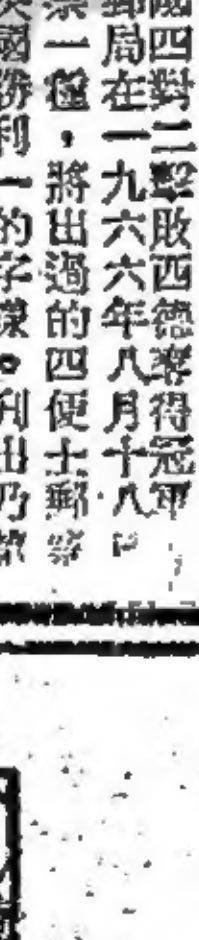 國四對二擊敗西德奪得冠軍，
郵局在一九六六年八月十八日
票一種，將出過的四便士郵票
英國勝利一的字樣。